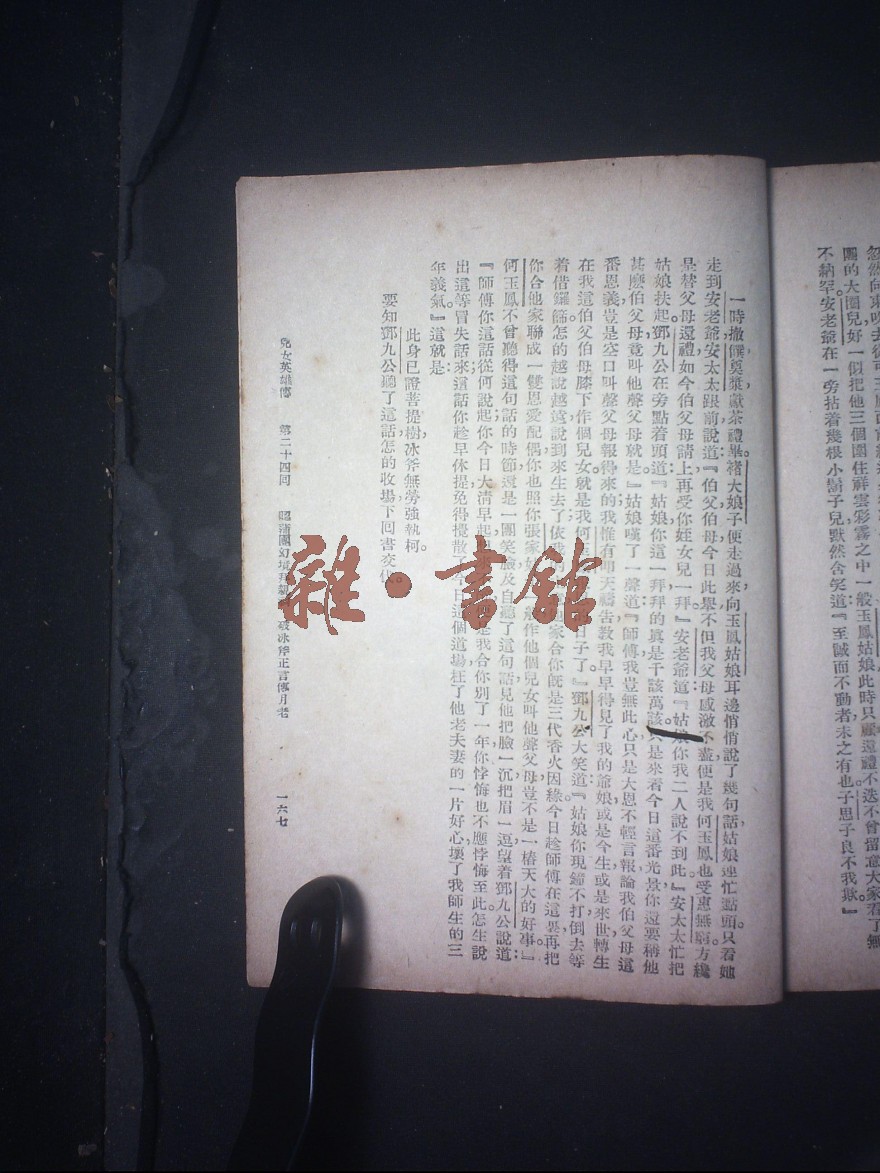 忽然向東
團的大圈兒好一似把他三個圍住祥雲彩霧之中一般玉鳳姑娘此時只顧還禮不迭不曾留意大家看了無
不納罕安老爺在一旁拈着幾根小鬍子兒默然含笑道『至誠而不動者未之有也子思子良不我欺』
一時撤饌奠漿獻茶禮畢褚大娘子便走過來向玉鳳姑娘耳邊悄悄說了幾句話姑娘連忙點頭只看她
走到安老爺安太太跟前說道『伯父伯母今日此舉不但我父母感激不盡便是我何玉鳳也受惠無窮方纔
是替父母還禮如今伯父母請上再受你姪女兒一拜』安老爺道『姑娘你我二人說不到此』安太太忙把
姑娘扶起鄧九公在旁點着頭道『姑娘你這一拜拜的眞是千該萬該只是來看今日這番光景你還要稱他
甚麽伯父母竟叫他聲父母就是』姑娘嘆了一聲道『師傅我豈無此心只是大恩不輕言報論我伯父母這
番恩義豈是空口叫聲父母報得來的我惟有叩天禱告教我早早得見了我的爺娘或是今生或是來世轉生
在我這伯父伯母膝下作個兒女就是我何 日子了』鄧九公大笑道『姑娘你現鐘不打倒去等
着借鑼篩怎的越說越遠說到來生去了依我 家合你旣是三代香火因緣今日趁師傅在這裏再把
你合他家聯成一雙恩愛配偶你也照你張家姑 般作他個兒女叫他聲父母豈不是一樁天大的好事』
何玉鳳不曾聽得這句話的時節還是一團笑臉及自聽了這句話見他把臉一沉把眉一逗望着鄧九公說道
『師傅你這話從何說起你今日大淸早起 是我合你別了一年你悖悔也不應悖悔至此怎生說
出這等冒失話來這話你趁早休提免得攪散了今日這個道場枉了他老夫妻的一片好心壞了我師生的三
年義氣』這就是
此身已證菩提樹冰斧無勞強執柯。
要知鄧九公聽了這話怎的收場下回書交代。
兒女英雄傳 第二十四回 認蒲團幻境拜親 破冰斧正言傳月老 一六七
雜·書館